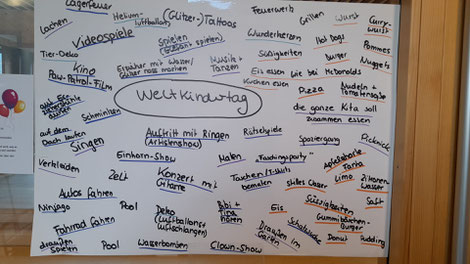 Lagerfeuer
Helium-
luftballons
(Glitzer-)Tattoos
Feuerwerk
Grillen
Wurst
Curry-
wurst
Lachen
Videospiele
Spielen
Wunderkerzen
Hot Dogs
Pommes
Tier-Deko
Süßigkeiten
Burger
Nuggets
Kino
Paw-Patrol-Film
Erzieher mit Wasser/
nass machen
Musik +
Tanzen
Eis essen wie bei McDonalds
Kuchen essen
Pizza
Nudeln +
Tomatensoße
Weltkindertag
die ganze Kita soll
zusammen essen
Schminken
auf dem
Dach laufen
Singen
Auftritt mit Ringen
(Artistenshow)
Rätselspiele
Spaziergang
Picknick
Verkleiden
Einhorn-Show
Malen
"Faschingsparty"
Apfelschorle
Fanta
Zelt
Konzert mit
Gitarre
Taschen/T-Shirts
bemalen
stilles Wasser
Limo
Zitronen-
wasser
Autos fahren
Süßigkeiten
Saft
Ninjago
Pool
Deko
(Luftballons +
Luftschlangen)
Bibi +
Tina
hören
Eis
Gummibärchen-
Burger
Fahrrad fahren
Schokolade
draußen
spielen
Pool
Wasserbomben
Clown-Show
Draußen im
Garten
Donut
Pudding